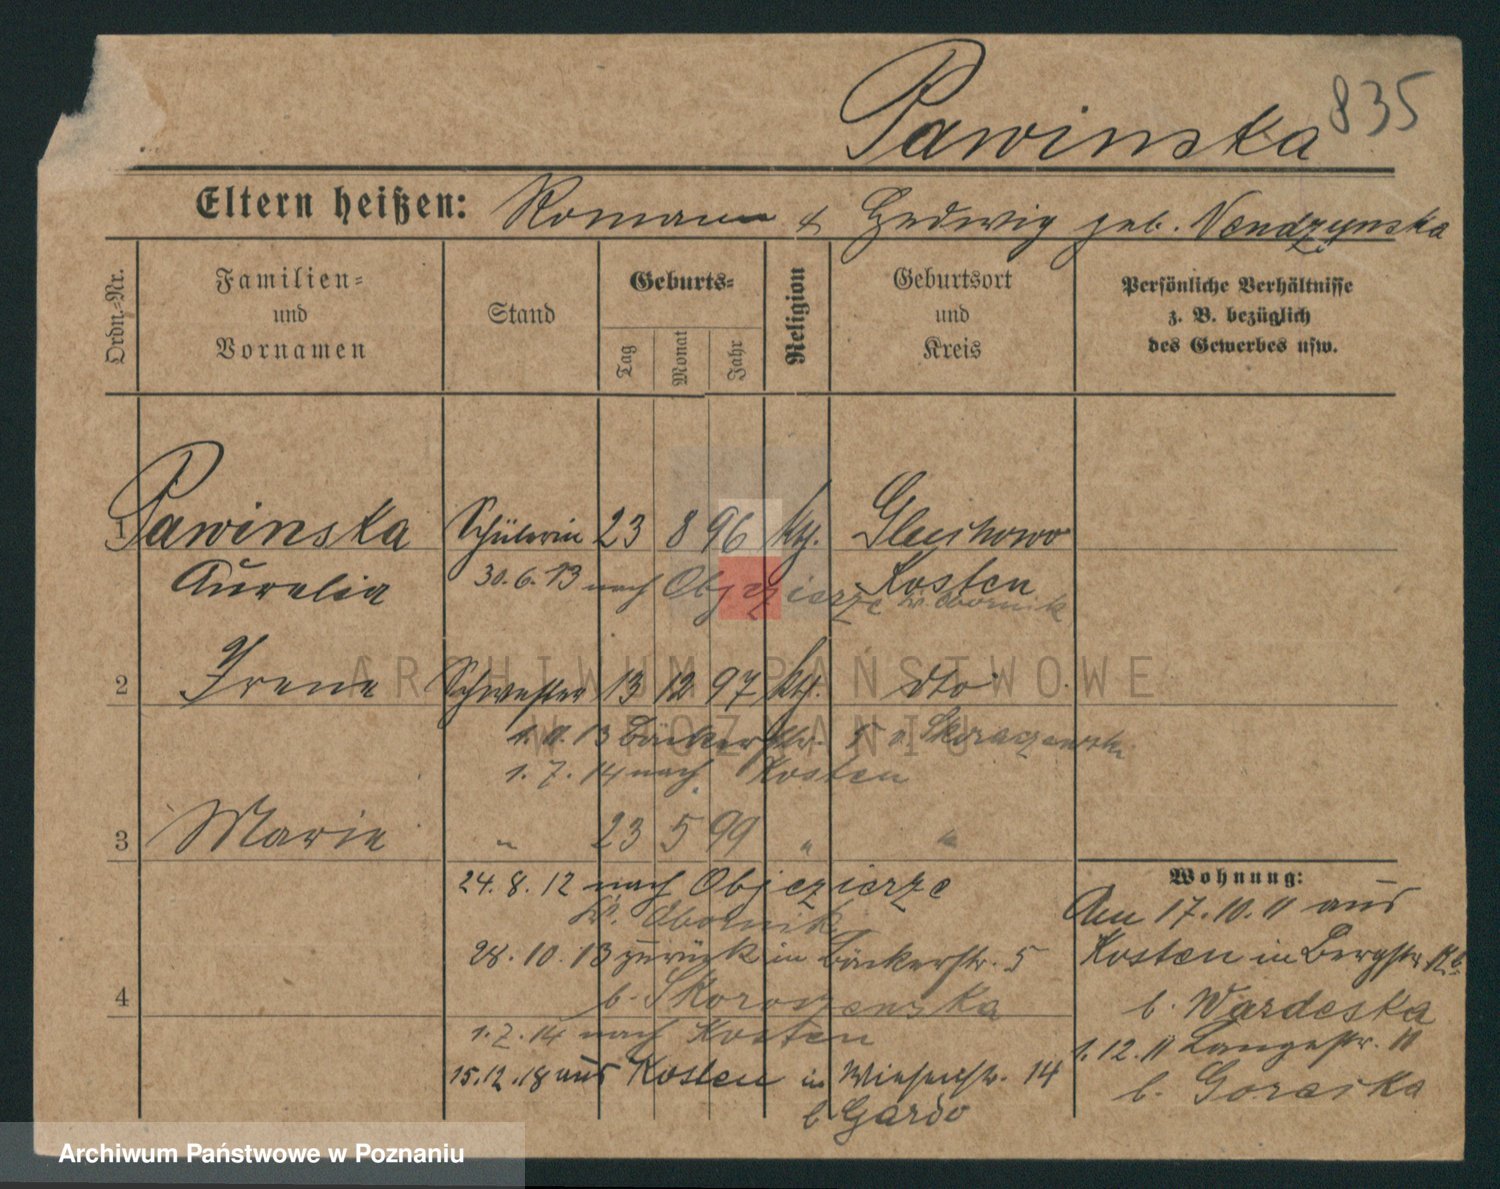 835
Pawinska
Eltern heißen: Roman & Hedwig geb. Vendzynska
Ordn.-Nr.
Familien- und Vornamen
Stand
Geburts-
Tag
Monat
Jahr
Religion
Geburtsort und Kreis
Persönliche Verhältnisse z. B. bezüglich des Gewerbes usw.
1 Pawinska Schülerin 23 8 96 kth. Gluchowo
Aurelia Kosten
30.6.13 nach Objezierze Kr. Obornik
2 Irene Schwester 13 12 97 kth. dto
1.11.13 Bäckerstr. 5
1.7.14 nach Kosten
3 Marie " 23 5 99 " "
24.8.12 nach Objezierze
Kr. Obornik
28.10.13 zurück in Bäckerstr. 5
4 b.
1.7.14 nach Kosten
15.12.18 aus Kosten in 14
b Gardo
Wohnung:
Am 17.10.11 aus
Kosten in Bergstr.
b. Wardeska
1.12.11 Langestr. 11
b. Goraska
ARCHIWUM PAŃSTWOWE
W POZNANIU
Archiwum Państwowe w Poznaniu